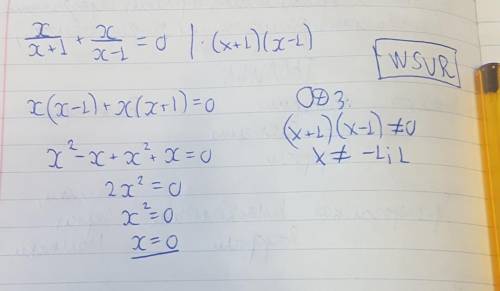 x/(x+1) + x/(x-1) = 0 | · (x+1)(x-1)
WSUR
x(x-1) + x(x+1) = 0
ОДЗ:
(x+1)(x-1) ≠ 0
x ≠ -1; 1
x² - x + x² + x = 0
2x² = 0
x² = 0
x = 0